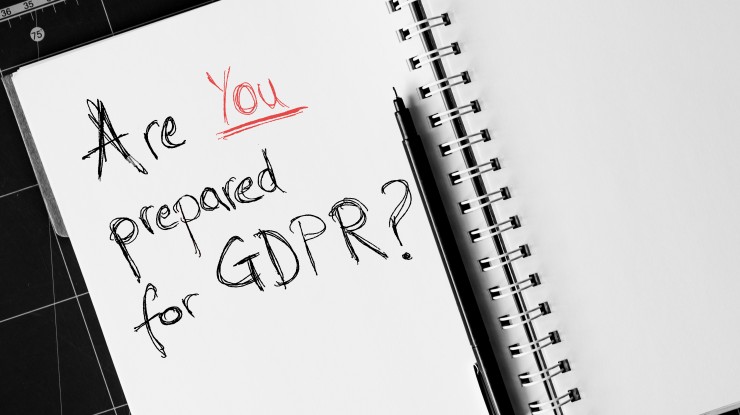 36 35
75
Are You
prepared
for GDPR?